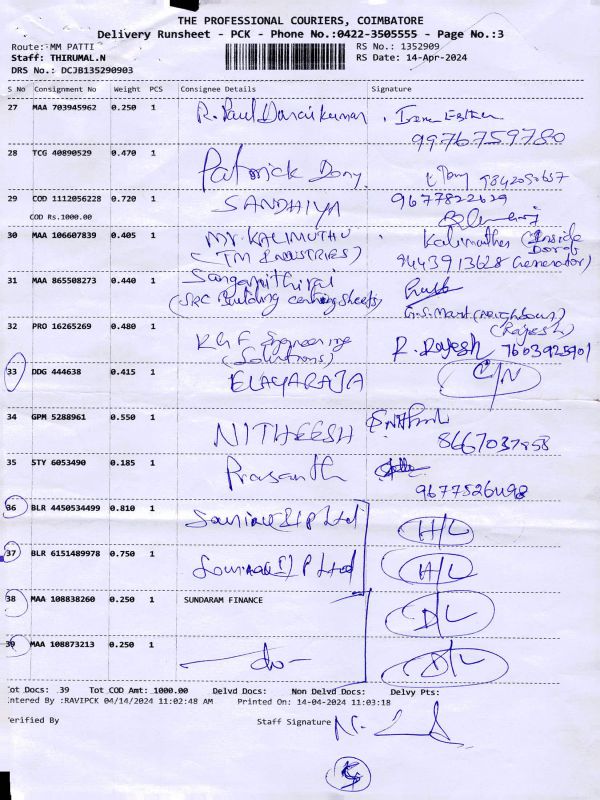 THE PROFESSIONAL COURIERS, COIMBATORE
Delivery Runsheet - PCK - Phone No.:0422-3505555 - Page No.:3
Route: MM PATTI RS No.: 1352909
Staff: THIRUMAL.N RS Date: 14-Apr-2024
DRS No.: DCJB135290903
S No Consignment No Weight PCS Consignee Details Signature
27 MAA 703945962 0.250 1 R. Paul
9976759780
28 TCG 40890529 0.470 1 Patrick Dony
29 COD 1112056228 0.720 1 SANDHIYA
COD Rs.1000.00
30 MAA 106607839 0.405 1 Mr. KALIMUTHU Kalimuthu (Inside
(TM INDUSTRIES) 9443913628 Generator)
31 MAA 865508273 0.440 1
(SRC Building centring sheets) G.S. Mart (neighbour)
(Rajesh)
32 PRO 16265269 0.480 1 KGF Engineering R. Rajesh 7603925901
(Solutions)
33 DDG 444638 0.415 1 ELAYARAJA C/N
34 GPM 5288961 0.550 1 NITHEESH
35 STY 6053490 0.185 1 Prasanth
9677526498
36 BLR 4450534499 0.810 1 P Ltd H/L
37 BLR 6151489978 0.750 1 P Ltd H/L
38 MAA 108838260 0.250 1 SUNDARAM FINANCE D/L
39 MAA 108873213 0.250 1 -do- D/L
ot Docs: 39 Tot COD Amt: 1000.00 Delvd Docs: Non Delvd Docs: Delvy Pts:
ntered By :RAVIPCK 04/14/2024 11:02:48 AM Printed On: 14-04-2024 11:03:18
erified By Staff Signature